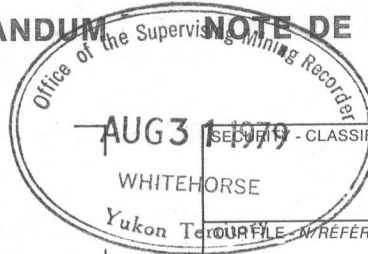 ANDUM NOTE DE
Office of the Supervising Mining Recorder
AUG 31 1979
SECURITY - CLASSIF
WHITEHORSE
Yukon Territory
OUR FILE - N/RÉFÉR